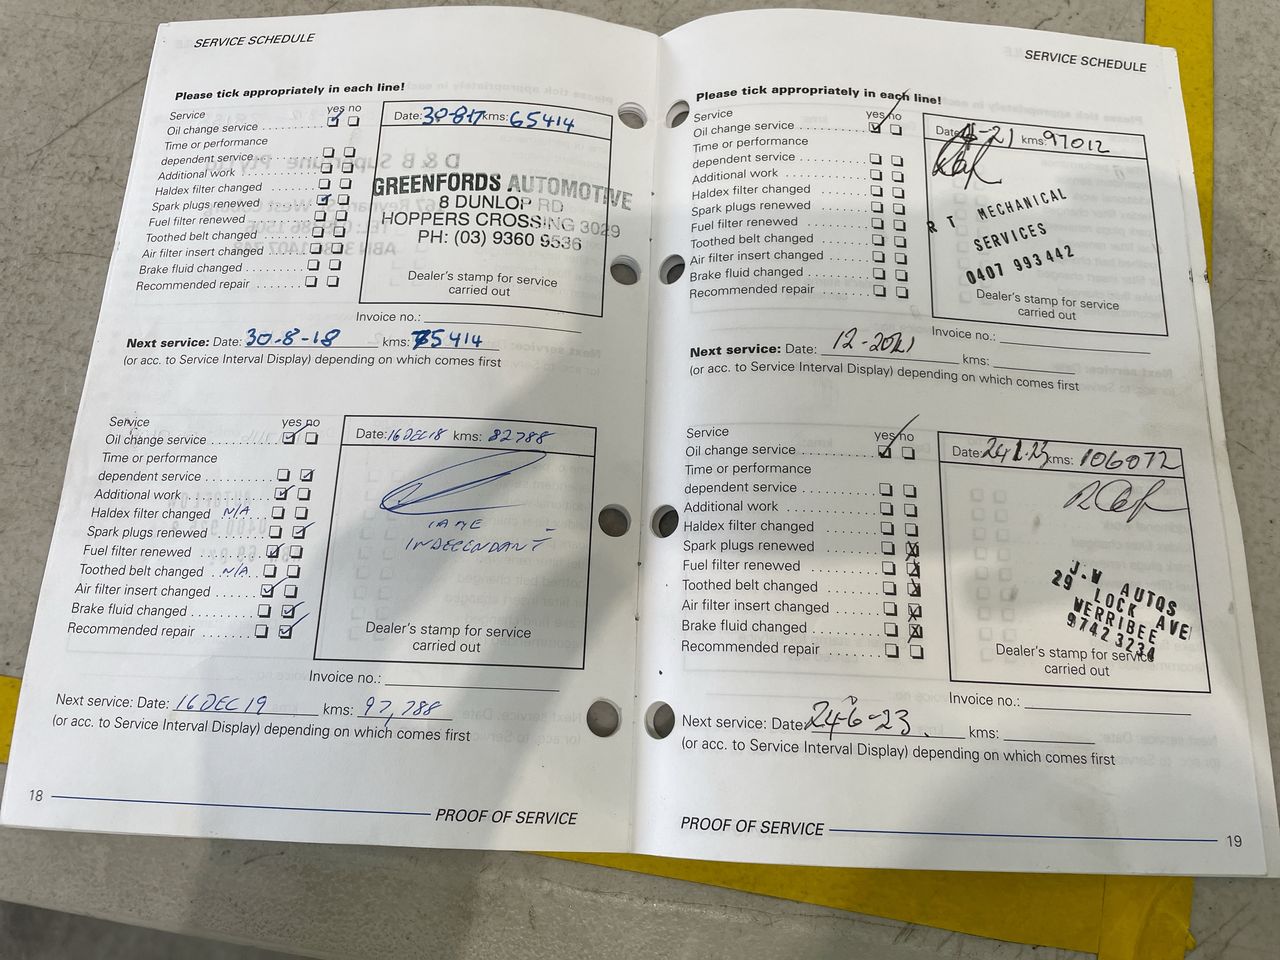 SERVICE SCHEDULE
Please tick appropriately in each line!
Service yes no
Oil change service
Time or performance
dependent service
Additional work
Haldex filter changed
Spark plugs renewed
Fuel filter renewed
Toothed belt changed
Air filter insert changed
Brake fluid changed
Recommended repair
Date: 30-8-17 kms: 65414
GREENFORDS AUTOMOTIVE
8 DUNLOP RD
HOPPERS CROSSING 3029
PH: (03) 9360 9536
Dealer's stamp for service
carried out
Invoice no.:
Next service: Date: 30-8-18 kms: 75414
(or acc. to Service Interval Display) depending on which comes first
Service yes no
Oil change service
Time or performance
dependent service
Additional work
Haldex filter changed N/A
Spark plugs renewed
Fuel filter renewed
Toothed belt changed N/A
Air filter insert changed
Brake fluid changed
Recommended repair
Date: 16 DEC 18 kms: 82788
INDEPENDANT
Dealer's stamp for service
carried out
Invoice no.:
Next service: Date: 16 DEC 19 kms: 97,788
(or acc. to Service Interval Display) depending on which comes first
18
PROOF OF SERVICE
SERVICE SCHEDULE
Please tick appropriately in each line!
Service yes no
Oil change service
Time or performance
dependent service
Additional work
Haldex filter changed
Spark plugs renewed
Fuel filter renewed
Toothed belt changed
Air filter insert changed
Brake fluid changed
Recommended repair
Date: -21 kms: 97012
R T MECHANICAL
SERVICES
0407 993 442
Dealer's stamp for service
carried out
Invoice no.:
Next service: Date: 12-2021 kms:
(or acc. to Service Interval Display) depending on which comes first
Service yes no
Oil change service
Time or performance
dependent service
Additional work
Haldex filter changed
Spark plugs renewed
Fuel filter renewed
Toothed belt changed
Air filter insert changed
Brake fluid changed
Recommended repair
Date: 24.1.23 kms: 106072
J-W AUTOS
29 LOCK AVE
WERRIBEE
9742 3234
Dealer's stamp for service
carried out
Invoice no.:
Next service: Date: 24-6-23 kms:
(or acc. to Service Interval Display) depending on which comes first
PROOF OF SERVICE
19